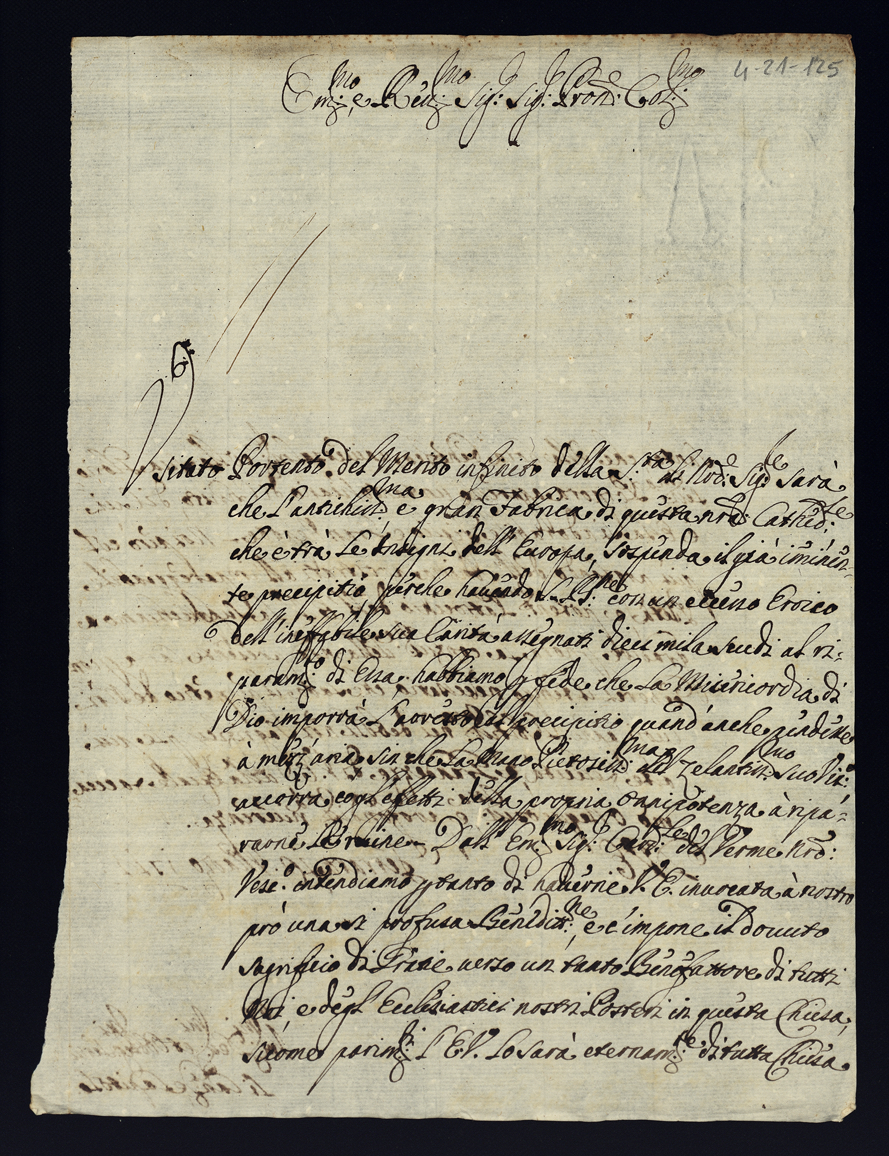 4-21-125
Em:mo e Reu:mo Sig: Sig: Pron: Col:mo
Vsitato Portento del Merito infinito della S: di Nro: Sig:re sarà,
che l'antichis:ma e gran Fabrica di questa nra: Cathed:le
che è trà le Insigni dell'Europa, sospenda il già iminen-
te precipitio perche hauendo con un Eroico
dell'ineffabile sua Carità assegnati dieci mila scudi al ri-
param:to di Essa, habbiamo p fede che la Misericordia di
Dio imporrà l'arresto del precipitio quand'anche pendesse
à mezz'aria, sin che la Mano Pietosis:ma del Zelantis:mo suo Vic:o
accorra cogl'effetti della propria Onnipotenza à ripa-
rarne le Ruine. Dall' Em:mo Sig: Card:le del Verme nro:
Vesc:o intendiamo p tanto di hauerne l'E. inuocata à nostro
prò una si profusa Benedit:ne, e c'impone il douuto
sagrificio di Gratie uerso un tanto Benefattore di tutti
Noi, e degl'Ecclesiastici nostri Posteri in questa Chiesa,
sicome parim:ti l'E.V. lo sarà eternam:te di tutta Chiesa